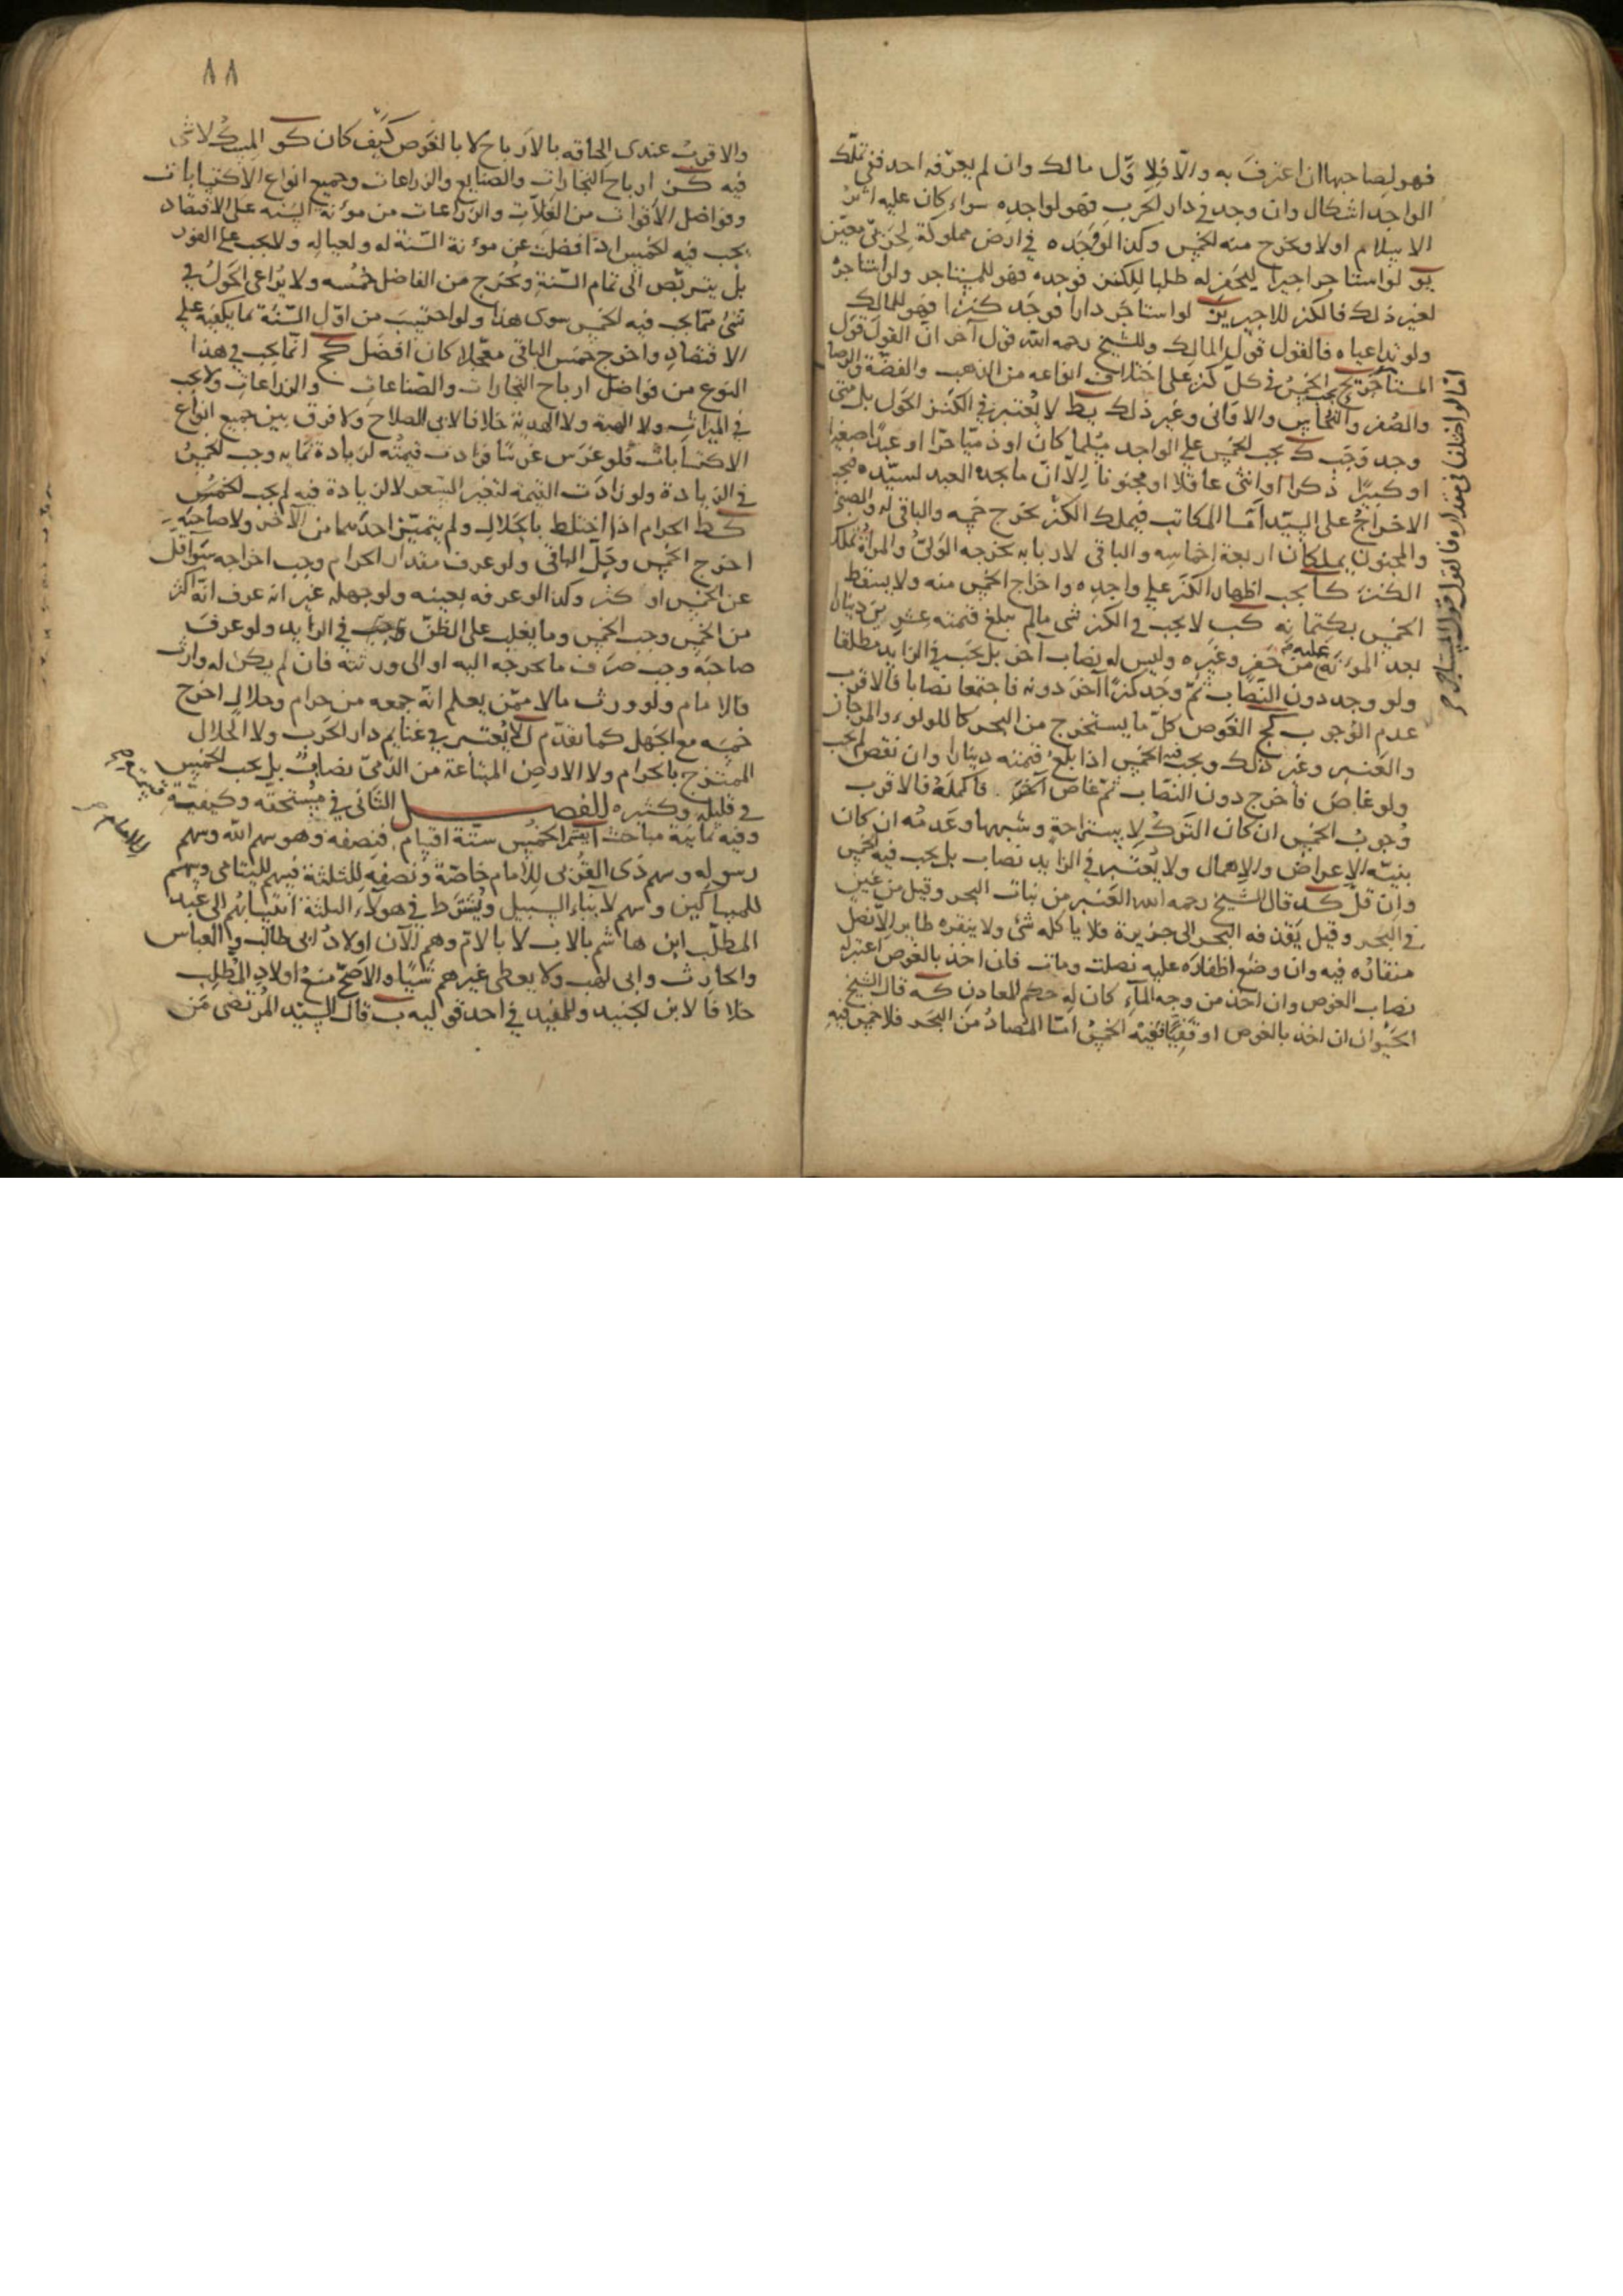 فهو لصاحبها ان اعترف به والّا فلاوّل مالك وان لم يعرّفه احد ففي تملّك
الواجد اشكال وان وجد في دار الحرب فهو لواجده سواء كان عليه اثر
الاسلام اولا ويخرج منه الخمس وكذا لو وجده في ارض مملوكة لحربي معيّن
يو لو استاجر اجيرا ليحفر له طلبا للكنز فوجده فهو للمستاجر ولو استاجره
لغير ذلك فالكنز للاجير ين لو استاجر دارا فوجد كنزا فهو للمالك
ولو تداعياه فالقول قول المالك وللشيخ رحمه الله قول آخر ان القول قول
المستاجر يح يجب الخمس في كلّ كنز على اختلاف انواعه من الذهب والفضّة والرصاص
والصفر والنحاس والاواني وغير ذلك يط لا يعتبر في الكنز الحول بل متى
وجد وجب ك يجب الخمس على الواجد مسلما كان او ذميّا حرّا او عبدا صغيرا
او كبيرًا ذكرا او انثى عاقلا او مجنونا الّا انّ ما يجده العبد لسيّده فيجب
الاخراج على السيّد امّا المكاتب فيملك الكنز يخرج خمسه والباقي له والصبيّ
والمجنون يملكان اربعة اخماسه والباقي لاربابه يخرجه الوليّ والمراة تملك
الكنز كا يجب اظهار الكنز على واجده واخراج الخمس منه ولا يسقط
الخمس بكتمانه كب لا يجب في الكنز شئ مالم يبلغ قيمته عشرين دينارا
بعد المؤنة عليه من حفر وغيره وليس له نصاب آخر بل يجب في الزايد مطلقا
ولو وجد دون النصاب ثمّ وجد كنزا آخر دونه فاجتمعا نصابا فالاقرب
عدم الوجوب كج الغوص كلّ ما يستخرج من البحر كاللولوء والمرجان
والعنبر وغير ذلك ويجب فيه الخمس اذا بلغ قيمته دينارا وان نقص لم يجب
ولو غاص فاخرج دون النصاب ثمّ غاص آخر فاكمله فالاقرب
وجوب الخمس ان كان الترك لاستراحة وشبهها وعدمه ان كان
بنيّة الاعراض والاهمال ولا يعتبر في الزايد نصاب بل يجب فيه الخمس
وان قلّ كد قال الشيخ رحمه الله العنبر من نبات البحر وقيل من عين
في البحر وقيل يقذفه البحر الى جزيرة فلا ياكله شئ ولا ينقره طاير الّا نصل
منقاره فيه وان وضع اظفاره عليه نصلت ومات فان اخذ بالغوص اعتبر له
نصاب الغوص وان اخذ من وجه المآء كان له حكم المعادن كه قال الشيخ
الحيوان ان اخذ بالغوص او قفيًا ففيه الخمس امّا المصاد من البحر فلا خمس فيه
امّا لو اختلفا في مقداره فالقول قول المستاجر
٨٨
والاقرب عندى الحاقه بالارباح لا بالغوص كيف كان كو المسك لا شئ
فيه كز ارباح التجارات والصنايع والزراعات وجميع انواع الاكتسابات
وفواضل الاقوات من الغلات والزراعات من مؤنة السنة على الاقتصاد
يجب فيه الخمس اذا فضلت عن مؤنة السّنة له ولعياله ولا يجب على الفور
بل يتربّص الى تمام السّنة ويخرج من الفاضل خمسه ولا يراعى الحول في
شئ ممّا يجب فيه الخمس سوى هذا ولو احتسب من اوّل السّنة ما يكفيه على
الاقتصاد واخرج خمس الباقي معجّلا كان افضل كح انّما يجب في هذا
النوع من فواضل ارباح التجارات والصّناعات والزراعات ولا يجب
في الميراث ولا الهبة ولا الهدية خلافا لابي الصلاح ولا فرق بين جميع انواع
الاكتسابات فلو غرس غرسًا فزادت قيمته لزيادة نمايه وجب الخمس
في الزيادة ولو زادت القيمة لتغير السعر لا لزيادة فيه لم يجب الخمس
كط الحرام اذا اختلط بالحلال ولم يتميّز احدهما من الآخر ولا صاحبه
اخرج الخمس وحلّ الباقي ولو عرف مقدار الحرام وجب اخراجه سواء قلّ
عن الخمس او كثر وكذا لو عرفه بعينه ولو جهله غير انه عرف انّه اكثر
من الخمس وجب الخمس وما يغلب على الظنّ في الزايد ولو عرف
صاحبه وجب صرف ما يخرجه اليه او الى ورثته فان لم يكن له وارث
فالامام ولو ورث مالا ممّن يعلم انّه جمعه من حرام وحلال اخرج
خمسه مع الجهل كما تقدّم ل لا يعتبر في غنايم دار الحرب ولا الحلال
الممتزج بالحرام ولا الارض المبتاعة من الذميّ نصاب بل يجب الخمس
في قليله وكثيره الفصل الثاني في مستحقّه وكيفيّة
قسمته
وفيه ثمانية مباحث ا يقسم الخمس ستّة اقسام فنصفه وهو سهم الله وسهم
رسوله وسهم ذى القربى للامام خاصّة ونصفه للثلثة فسهم لليتامى وسهم
للمساكين وسهم لابناء السبيل ويشترط في هولاء الثلثة انتسابهم الى عبد
المطلّب ابن هاشم بالاب لا بالامّ وهم الآن اولاد ابي طالب والعباس
والحارث وابي لهب ولا يعطى غيرهم شيًا والاصحّ منع اولاد المطلب
خلافا لابن الجنيد وللمفيد في احد قوليه ب قال السيّد المرتضى من